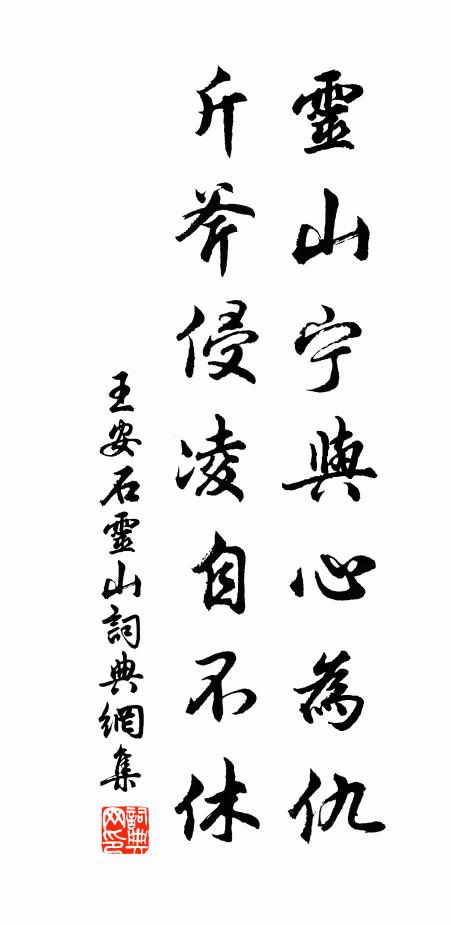 靈山宁與心為仇
斤斧侵凌自不休
王安石靈山詞典網集
詞典网印